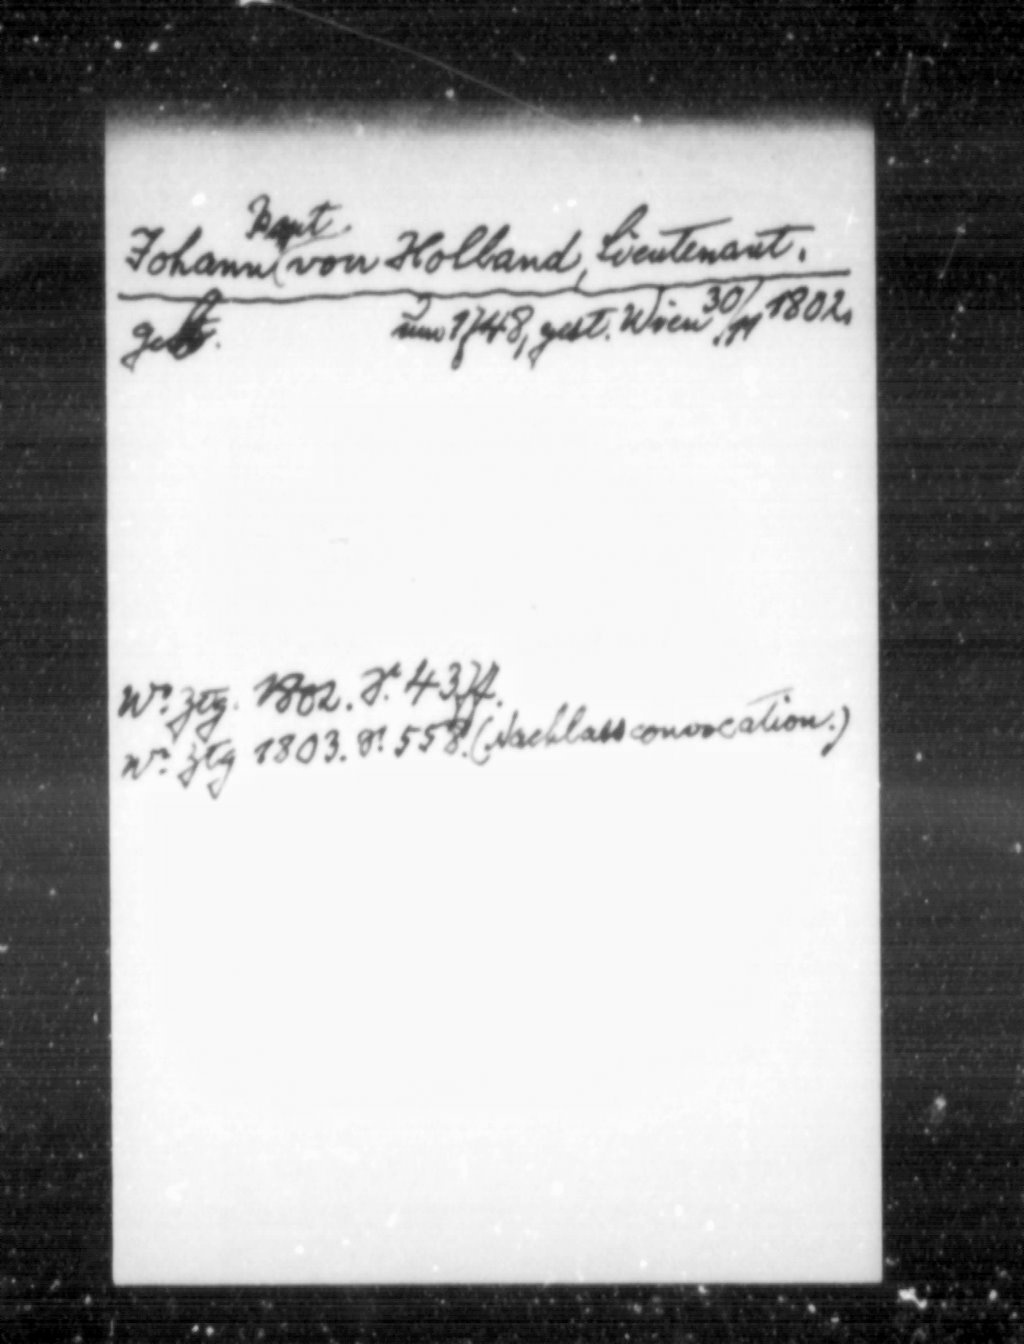 Johann Bapt. von Holland, Lieutenant.
geb. um 1748, gest. Wien 30/11 1802.
Wr. Ztg. 1802. S. 4374.
Wr. Ztg 1803. S. 558. (Nachlassconvocation.)